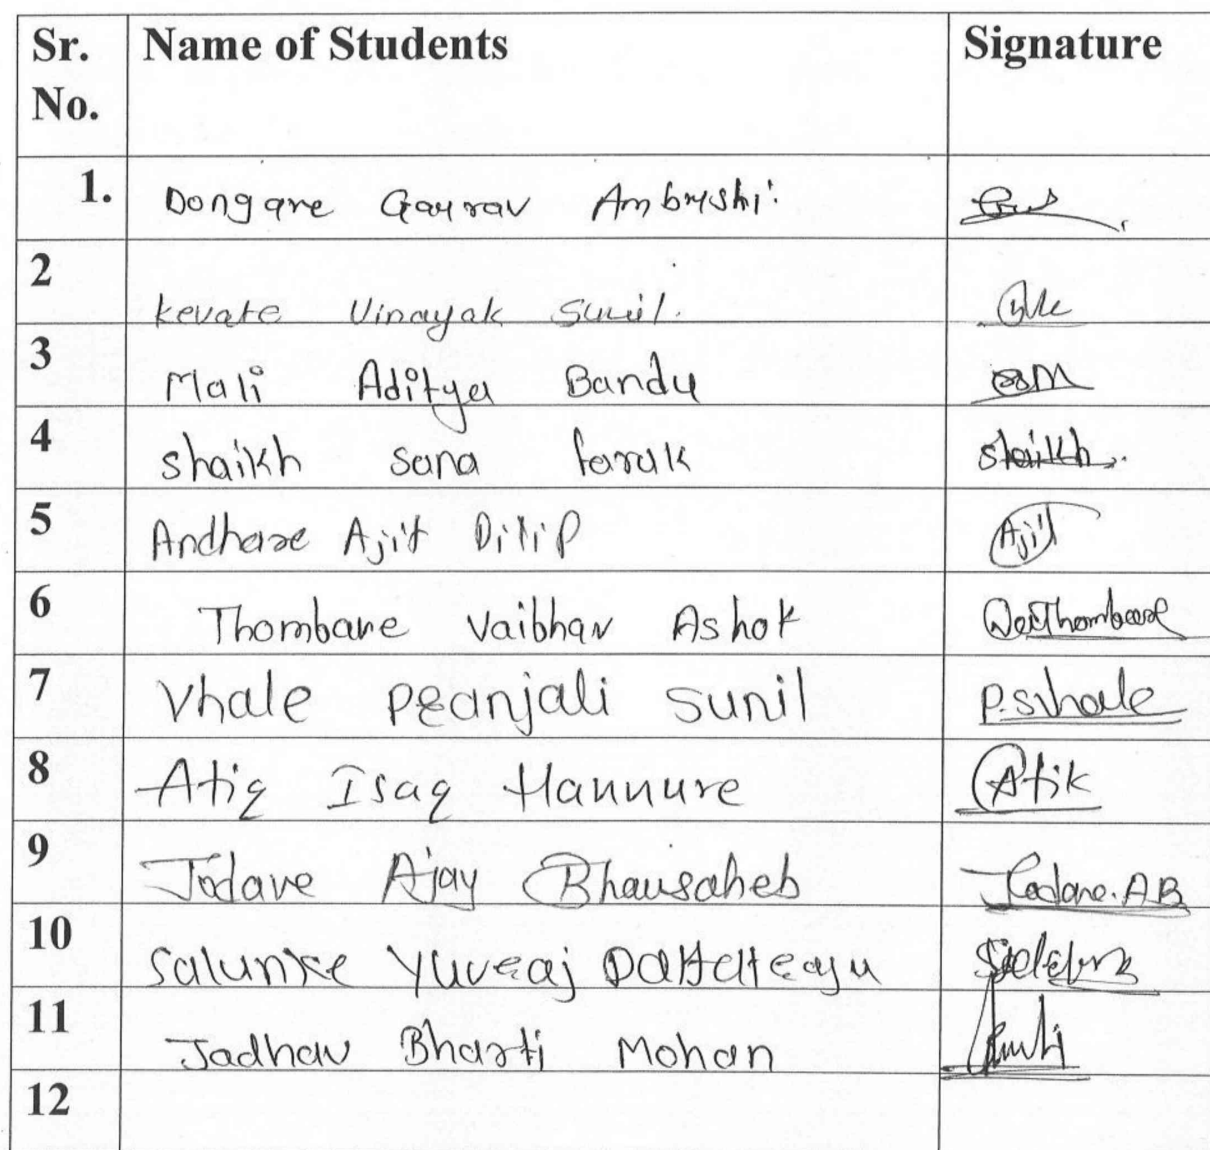 Sr. No. Name of Students Signature
1. Dongare Gaurav Ambrushi
2 Kevate Vinayak Sunil.
3 Mali Aditya Bandu
4 Shaikh Sana faruk Shaikh
5 Andhare Ajit Dilip Ajit
6 Thombare Vaibhav Ashok
7 Vhale Pranjali Sunil P.S.Vhale
8 Atiq Isaq Hannure Atik
9 Jadave Ajay Bhausaheb Jadave.AB
10 Salunke Yuvraj Dattatrayu
11 Jadhav Bharti Mohan
12